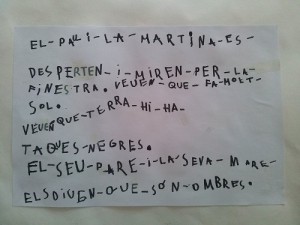 EL-PAU-I-LA-MARTINA-ES-
DESPERTEN-I-MIREN-PER-LA-
FINESTRA. VEUEN-QUE-FA-MOLT-
SOL.
VEUEN QUE-TERRA-HI-HA-
TAQUES-NEGRES.
EL-SEU-PARE-I-LA-SEVA-MARE-
ELSDIUEN-QUE-SÓN-OMBRES.